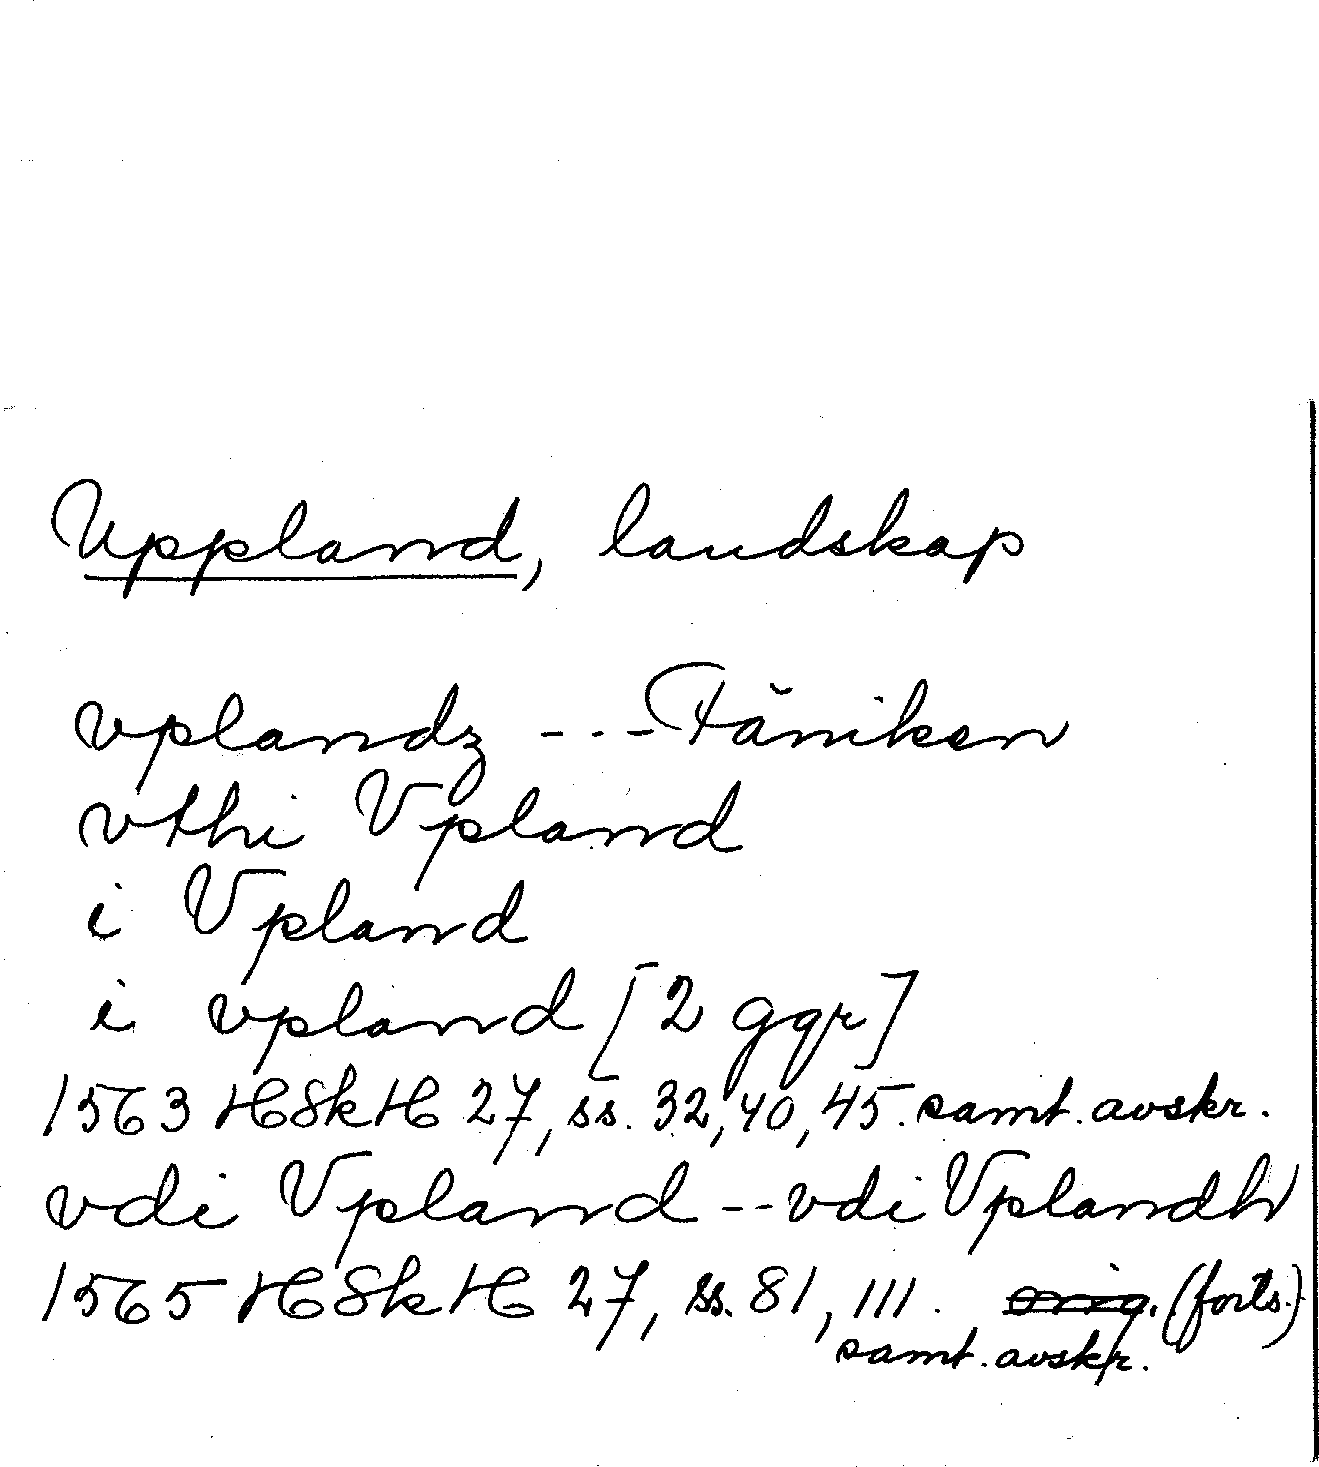 Uppland, landskap
vplandz --- Fäniken
vthi Vpland
i Vpland
i vpland [2 ggr]
1563 HSkH 27, ss. 32, 40, 45. samt. avskr.
vdi Vpland -- vdi Vplandh
1565 HSkH 27, ss. 81, 111. orig. (forts.)
samt. avskr.